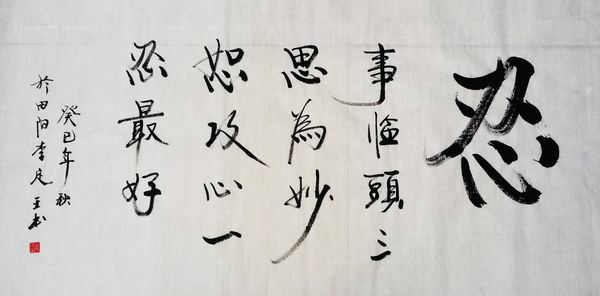 忍
事臨頭三
思為妙
怒攻心一
忍最好
癸巳年秋
於田阳李书